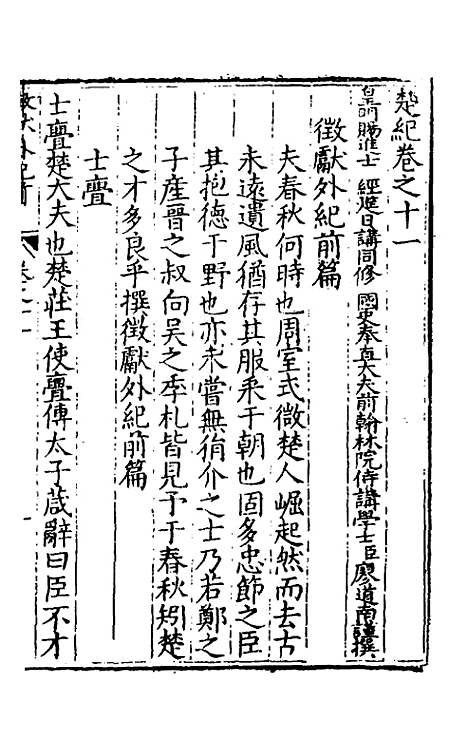 楚紀卷之十一
皇明賜進士 經筵日講同修 國史奉直大夫前翰林院侍講學士臣廖道南謹撰
徵獻外紀前篇
夫春秋何時也周室式微楚人崛起然而去古
未遠遺風猶存其服采于朝也固多忠節之臣
其抱德于野也亦未嘗無狷介之士乃若鄭之
子產晉之叔向吳之季札皆見予于春秋矧楚
之才多良乎撰徵獻外紀前篇
士亹
士亹楚大夫也楚莊王使亹傅太子葴辭曰臣不才